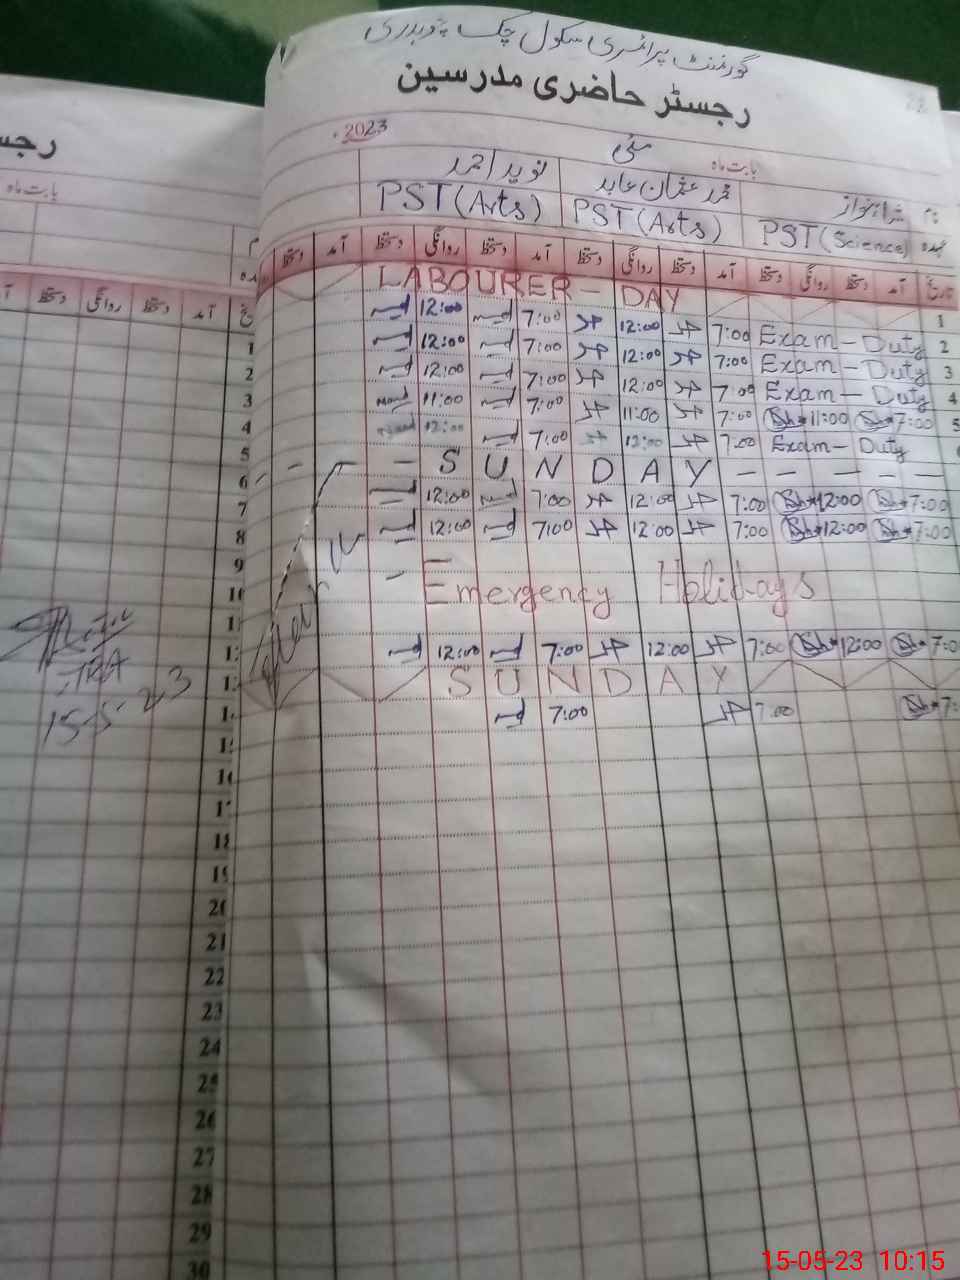 گورنمنٹ پرائمری سکول چک
رجسٹر حاضری مدرسین
بابت ماہ مئی 2023
نام شاہنواز محمد عثمان عابد نوید احمد
عہدہ PST (Science) PST (Arts) PST (Arts)
تاریخ آمد دستخط روانگی دستخط آمد دستخط روانگی دستخط آمد دستخط روانگی دستخط آمد دستخط
1 LABOURER - DAY
2 Exam - Duty 7:00 12:00 7:00 12:00
3 Exam - Duty 7:00 12:00 7:00 12:00
4 Exam - Duty 7:00 12:00 7:00 12:00
5 7:00 11:00 7:00 11:00 7:00 11:00
6 Exam - Duty 7:00 12:00 7:00 12:00
- - - S U N D A Y - - - - -
7:00 12:00 7:00 12:00 7:00 12:00
7:00 12:00 7:00 12:00 7:00 12:00
Emergency Holidays
7:0 12:00 7:00 12:00 7:00 12:00
S U N D A Y
7: 7:00 7:00
رجس
بابت ماہ
آمد دستخط روانگی دستخط آ
1
2
3
4
5
6
7
8
9
10
1
1
1
1
15
16
17
18
19
20
21
22
23
24
25
26
27
28
29
30
15-5-23
15-05-23 10:15